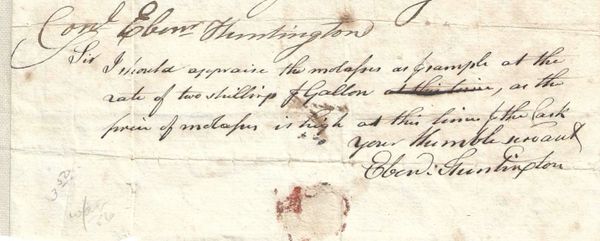 Conl. Ebenr Huntington
Sir I should appraise the molasses as ⅌ sample at the
rate of two shillings ⅌ Gallon at this time, as the
price of molasses is high at this time & the Cask
your Humble servant
Eben. Huntington
3.50